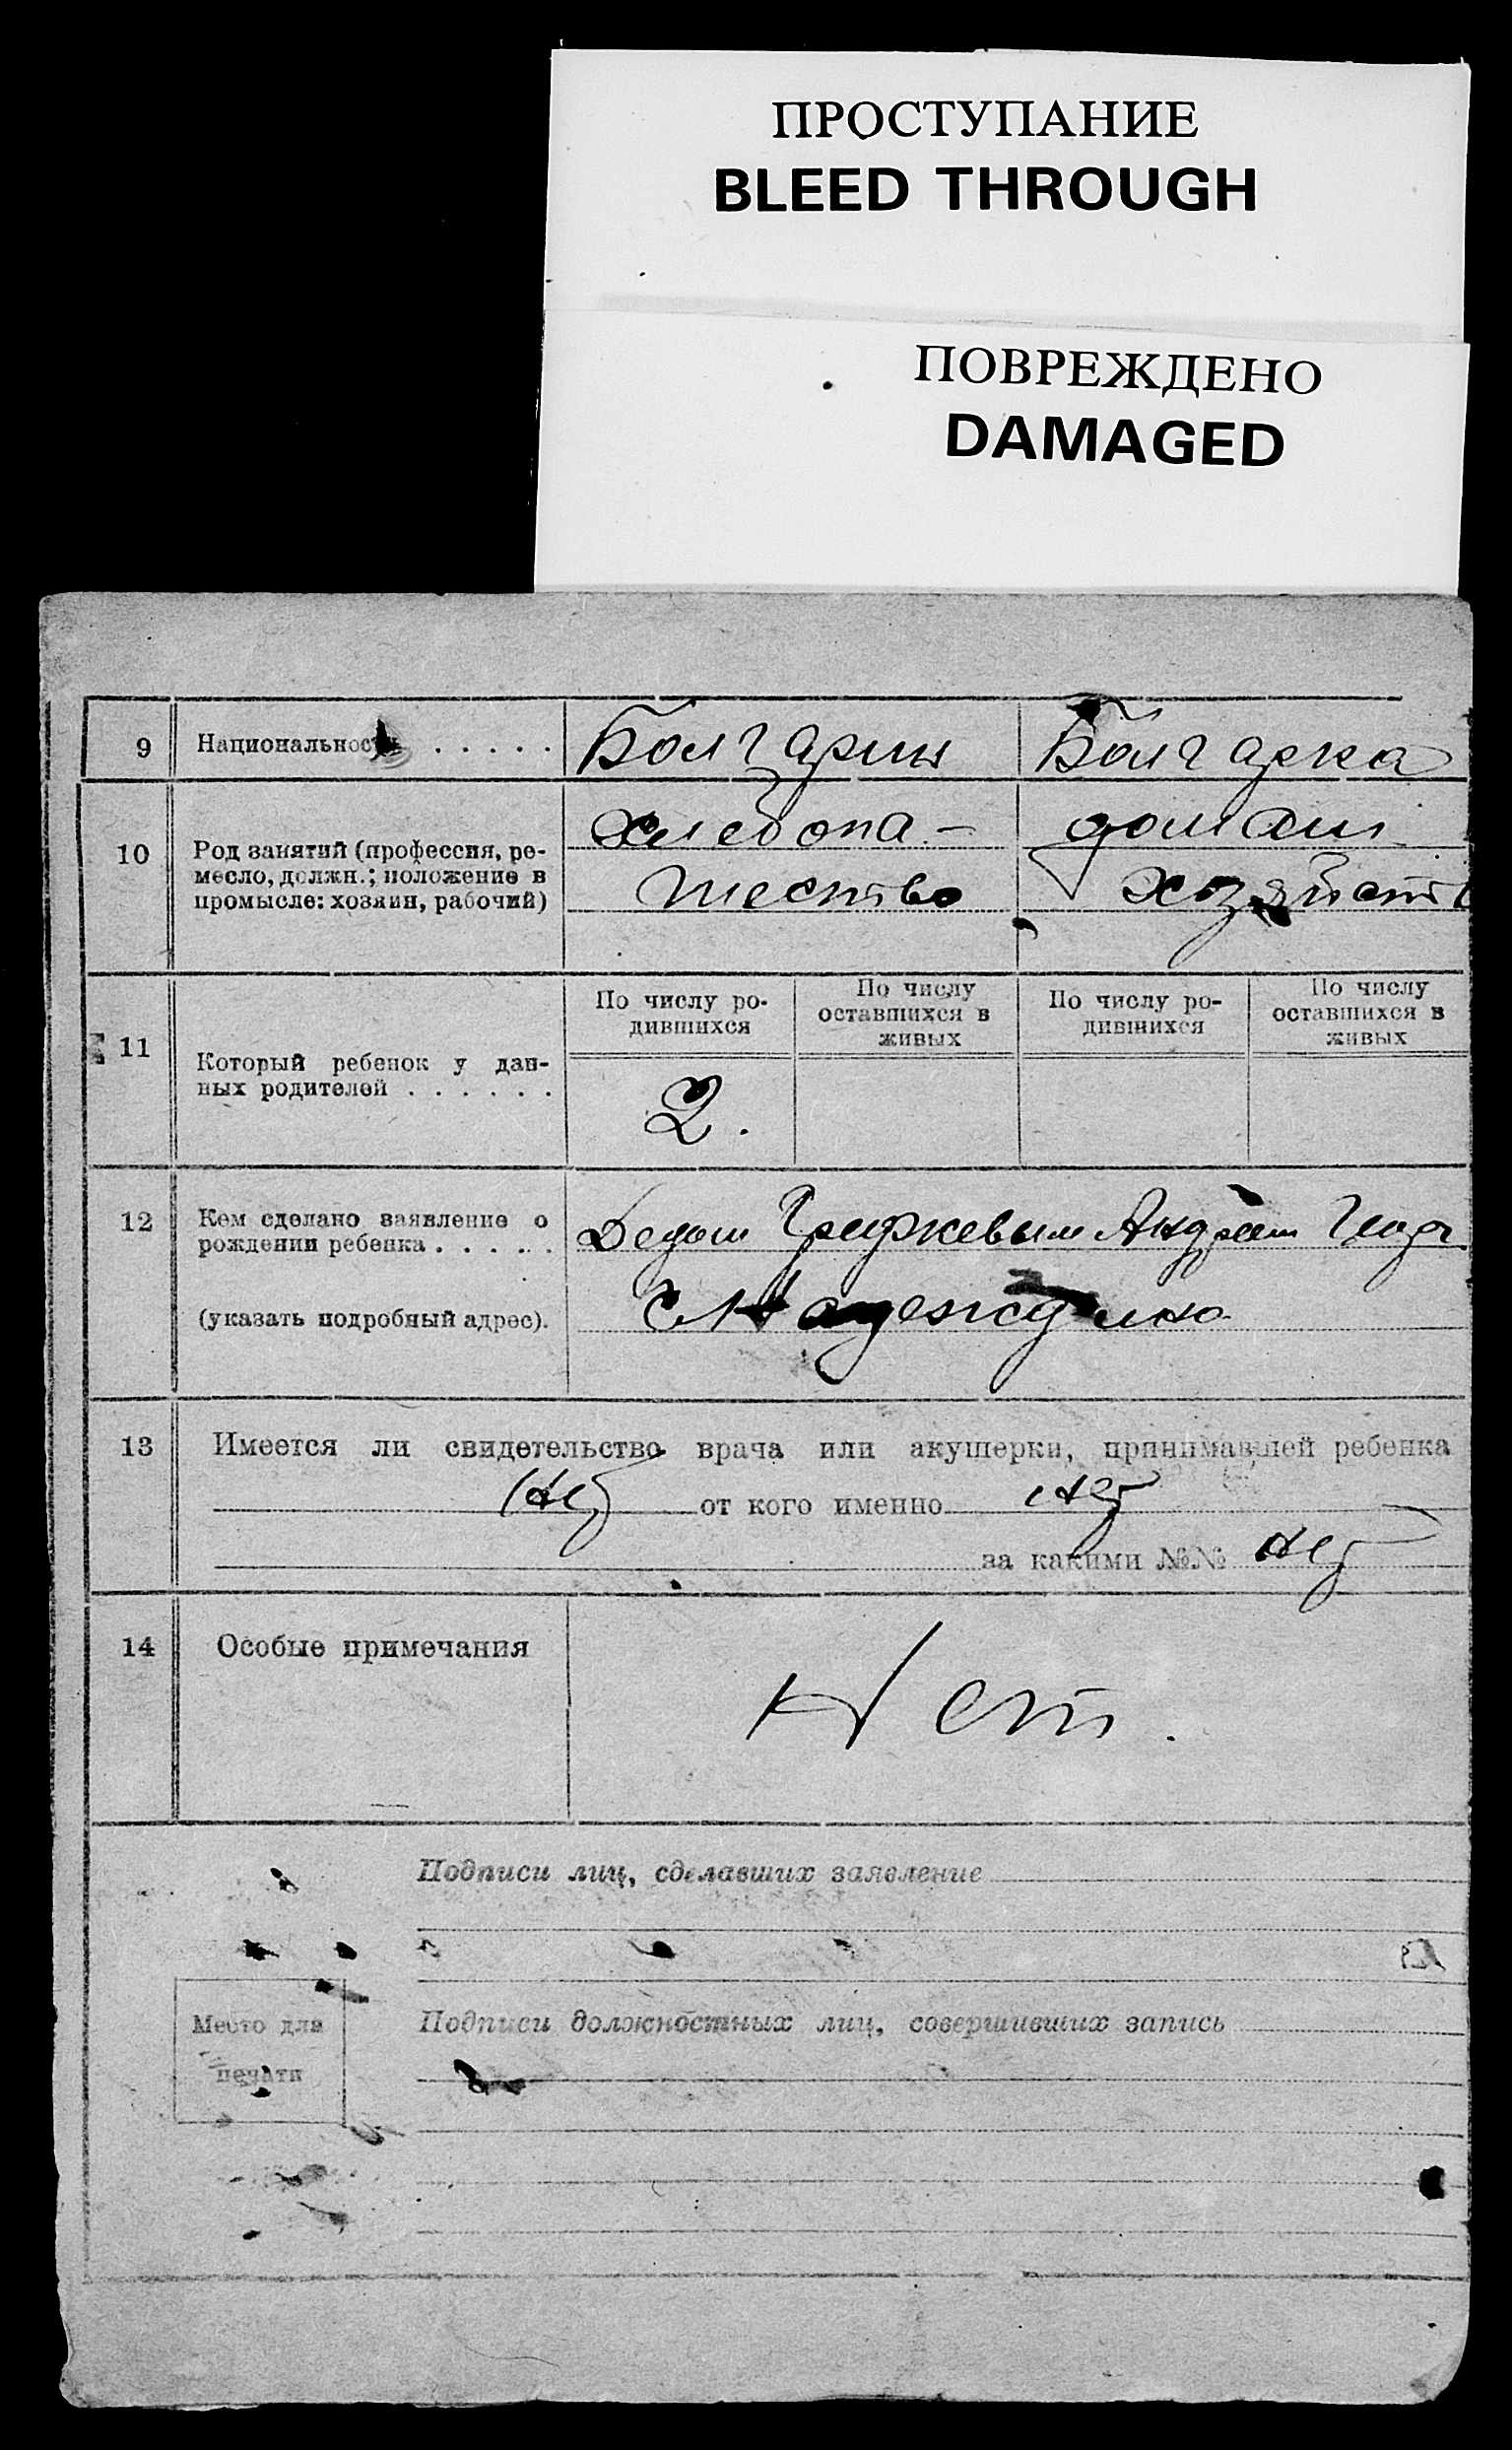 ПРОСТУПАНИЕ
BLEED THROUGH
ПОВРЕЖДЕНО
DAMAGED
9 Национальность . . . . . Болгарин Болгарка
10 Род занятий (профессия, ре-
месло, должн.; положение в
промысле: хозяин, рабочий)
хлебопа-
шество
домаш.
хозяйств
11 Который ребенок у дан-
ных родителей . . . . . .
По числу ро-
дившихся
По числу
оставшихся в
живых
По числу ро-
дившихся
По числу
оставшихся в
живых
2.
12 Кем сделано заявление о
рождении ребенка . . . . .
(указать подробный адрес).
Дедом Андреем
13 Имеется ли свидетельство врача или акушерки, принимавшей ребенка
нет от кого именно нет
за какими №№ нет
14 Особые примечания Нет.
Подписи лиц, сделавших заявление
Место для
печати
Подписи должностных лиц, совершивших запись